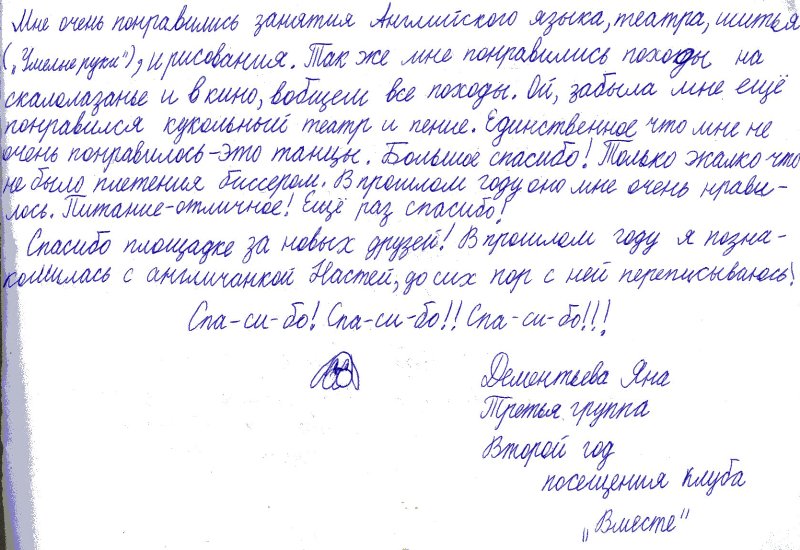 Мне очень понравились занятия Английского языка, театра, шитья
(„Умелые руки"), и рисования. Так же мне понравились походы на
скалолазанье и в кино, вобщем все походы. Ой, забыла мне ещё
понравился кукольный театр и пение. Единственное что мне не
очень понравилось-это танцы. Большое спасибо! Только жалко что
не было плетения биссером. В прошлом году оно мне очень нрави-
лось. Питание-отличное! Ещё раз спасибо!
Спасибо площадке за новых друзей! В прошлом году я позна-
комилась с англичанкой Настей, до сих пор с ней переписываюсь!
Спа-си-бо! Спа-си-бо!! Спа-си-бо!!!
Дементьева Яна
Третья группа
Второй год
посещения клуба
„Вместе"